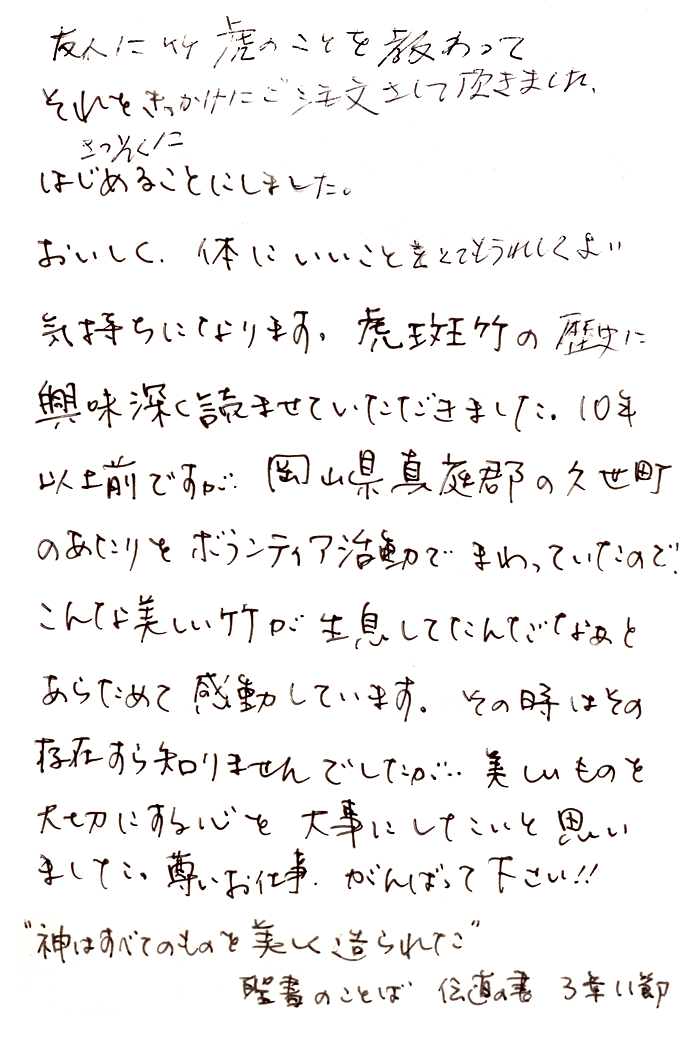 友人に竹虎のことを教わって
それをきっかけにご注文さして頂きました。
さっそくに
はじめることにしました。
おいしく、体にいいことをとてもうれしくよい
気持ちになります。虎斑竹の歴史に
興味深く読ませていただきました。10年
以上前ですが… 岡山県真庭郡の久世町
のあたりをボランティア活動でまわっていたので、
こんな美しい竹が生息してたんだなぁと
あらためて感動しています。その時はその
存在すら知りませんでしたが… 美しいものを
大切にする心を大事にしたいと思い
ました。尊いお仕事、がんばって下さい!!
"神はすべてのものを美しく造られた"
聖書のことば 伝道の書 3章11節